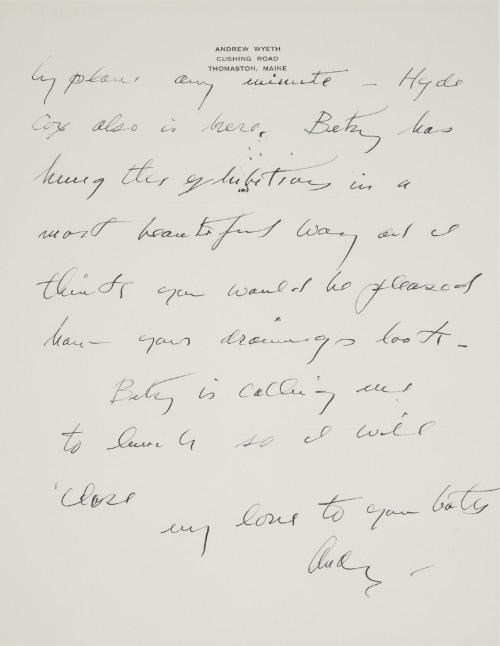 ANDREW WYETH
CUSHING ROAD
THOMASTON, MAINE
by plane any minute – Hyde
Cox also is here. Betsy has
hung this exhibition in a
most beautiful way and I
think you would be pleased
how your drawings look –
Betsy is calling me
to lunch so I will
close
my love to you both
Andy –